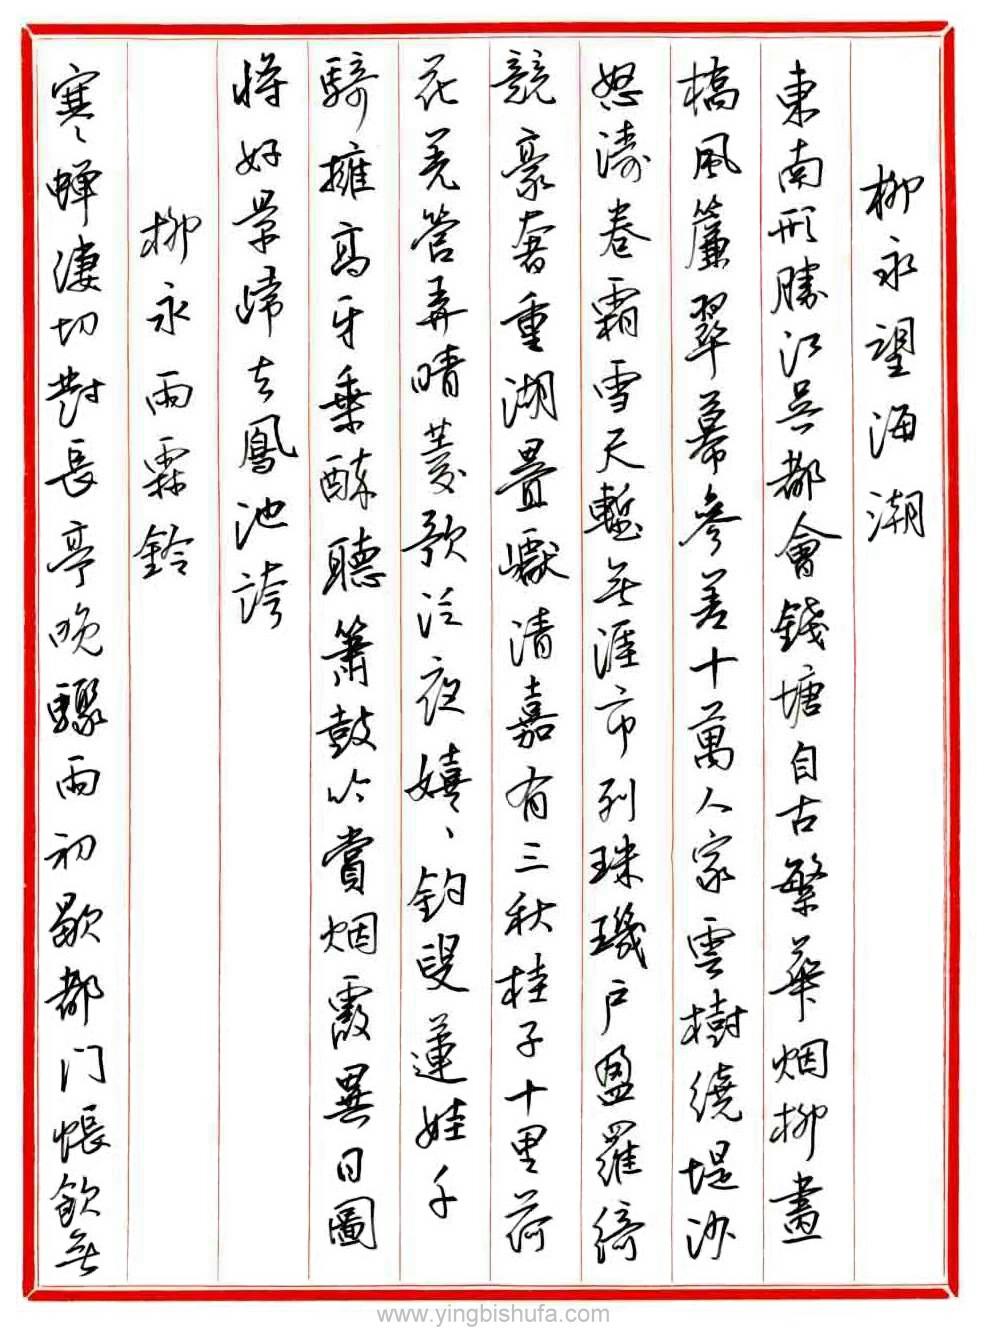 柳永望海潮
東南形勝江吳都會錢塘自古繁華烟柳畫
橋風簾翠幕參差十萬人家雲樹繞堤沙
怒濤卷霜雪天塹無涯市列珠璣戶盈羅綺
競豪奢重湖疊巘清嘉有三秋桂子十里荷
花羌管弄晴菱歌泛夜嬉〻釣叟蓮娃千
騎擁高牙乘醉聽簫鼓吟賞烟霞異日圖
將好景歸去鳳池誇
柳永雨霖鈴
寒〻蟬淒切對長亭晚驟雨初歇都門帳飲無
www.yingbishufa.com